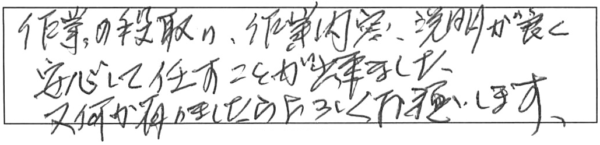 作業の段取り、作業内容、説明が良く
安心して任すことが出来ました、
又何か有りましたらよろしくお願いします、